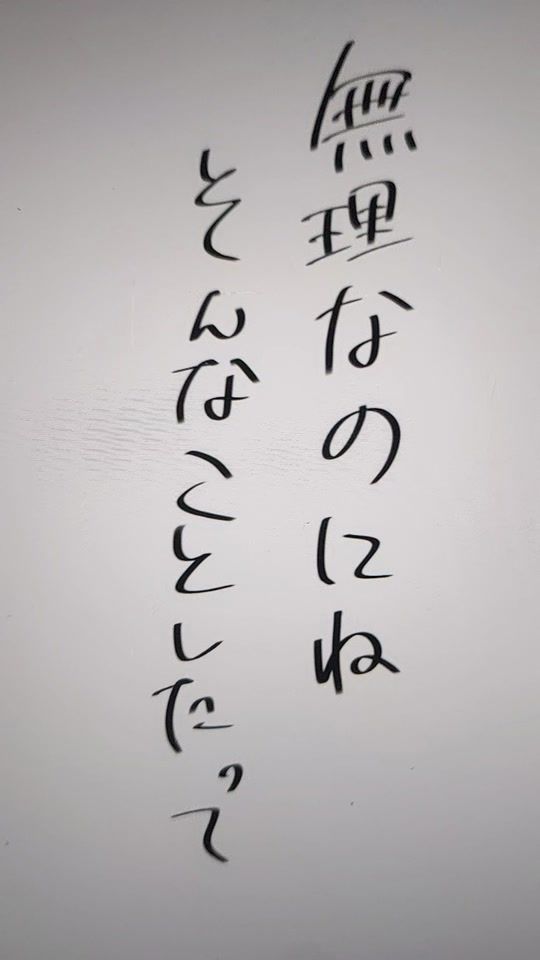 無理なのにね
そんなことしたって